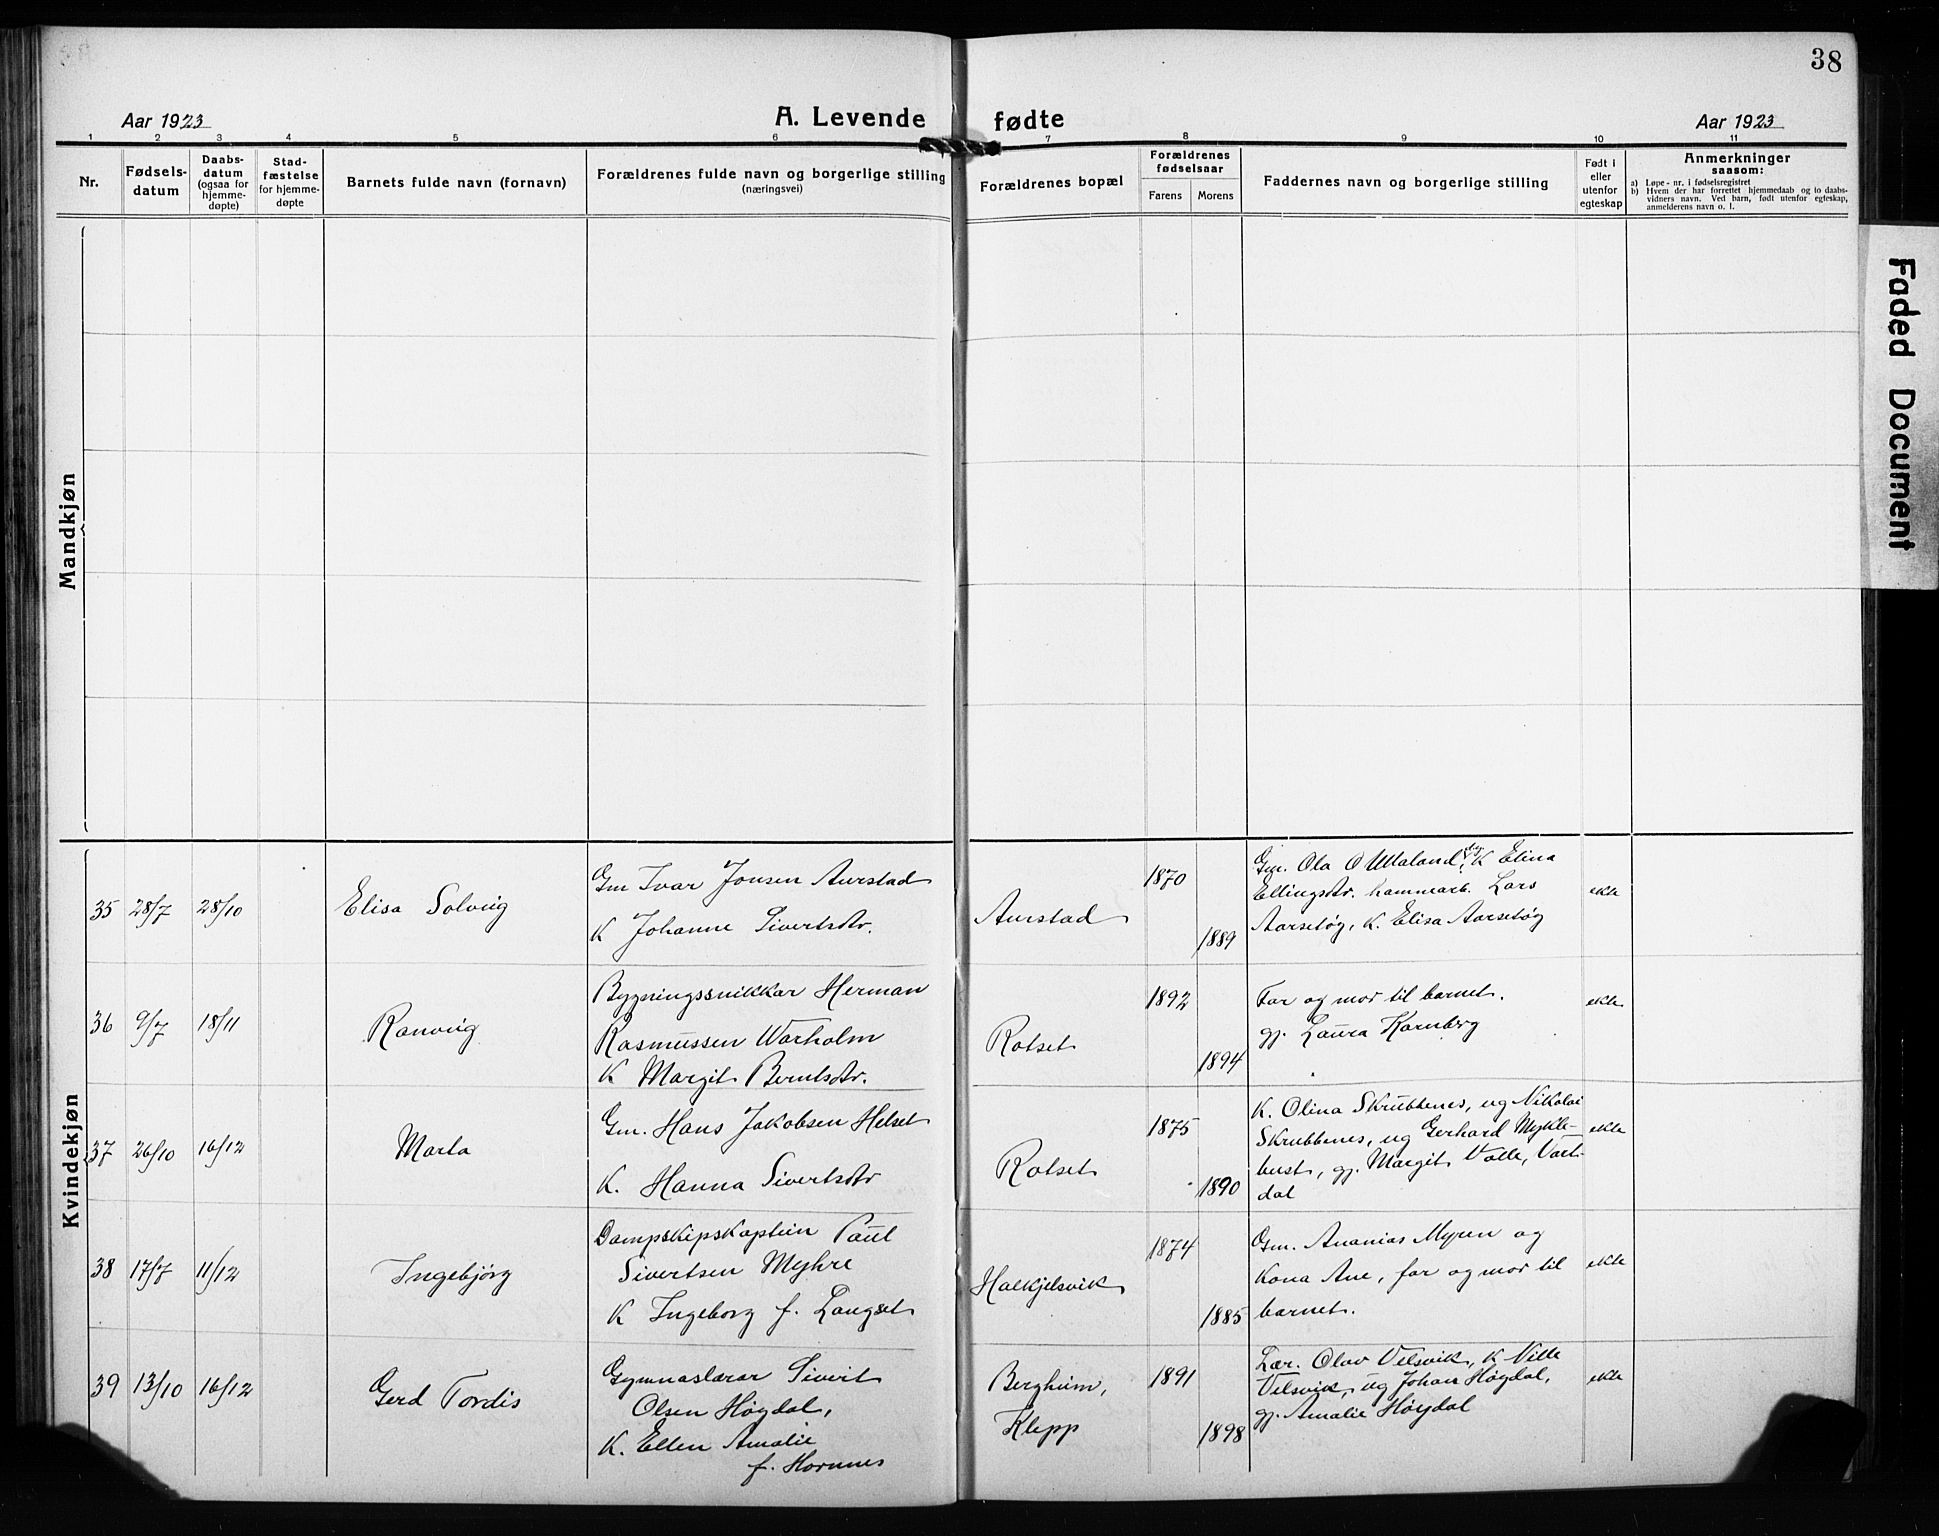 38
Aar 1923
A. Levende fødte
Aar 1923
1 2 3 4 5 6 7 8 9 10 11
Nr.
Fødsels-
datum
Daabs-
datum
(ogsaa for
hjemme-
døpte)
Stad-
fæstelse
for hjemme-
døpte
Barnets fulde navn (fornavn)
Forældrenes fulde navn og borgerlige stilling
(næringsvei)
Forældrenes bopæl
Forældrenes
fødselsaar
Farens Morens
Faddernes navn og borgerlige stilling
Født i
eller
utenfor
egteskap
Anmerkninger
saasom:
a) Løpe-nr. i fødselsregistret
b) Hvem der har forrettet hjemmedaab og to daabs-
vidners navn. Ved barn, født utenfor egteskap,
anmelderens navn o. l.
Faded Document
Mandkjøn
Kvindekjøn
35 28/7 28/10
Elisa Solveig
Gm Ivar Jonsen Aurstad
K Johanne Sivertsdtr.
Aurstad
1870
1889
Gm. Ola O Ulvaland, K Elina
Ellingsdtr. hammarb. Lars
Aarsetøg, K. Elisa Aarsetøg
ekte
36 9/7 18/11
Ranveig
Bygningssnikkar Herman
Rasmussen Warholm
K Margit Berntsdtr.
Rotset
1892
1894
Far og mor til barnet.
gj. Laura Kornberg
ekte
37 26/10 16/12
Marta
Gm. Hans Jakobsen Helset
K. Hanna Sivertsdtr
Rotset
1875
1890
K. Olina Skrubbenes, ug Nikolai
Skrubbenes, ug Gerhard Mykle-
bust, gj. Margit Valle, Vart-
dal
ekte
38 17/7 11/12
Ingebjørg
Dampskipskaptein Paul
Sivertsen Myhre
K Ingeborg f. Langset
Halkjelsvik
1874
1885
Gm. Ananias Myren og
Kona Ane, far og mor til
barnet.
ekte
39 13/10 16/12
Gerd Tordis
Gymnaslærar Sivert
Olsen Høydal,
K. Ellen Amalie
f. Hornnes
Berghum,
Klepp
1891
1898
Lær. Olav Velsvik, K Ville
Velsvik, ug Johan Høydal,
gj. Amalie Høydal
ekte